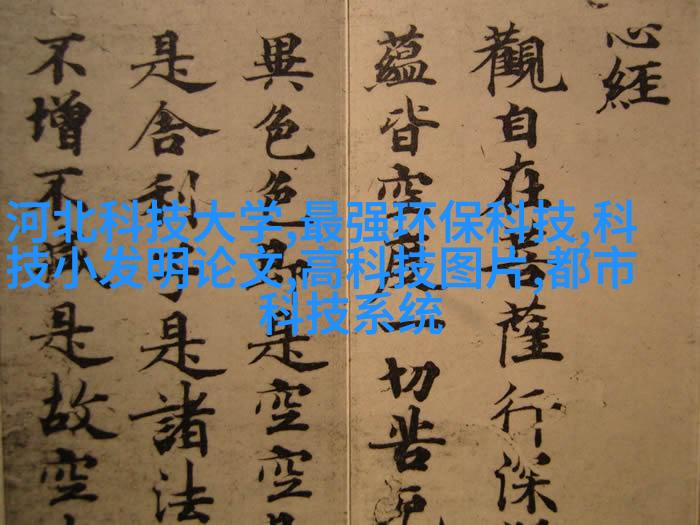 心經
觀自在菩薩行深
蘊皆空度一切苦厄
異色色即是空空是
是舍利子是諸法
不增不減是故空
河北科技大学,最强环保科技,科
技小发明论文,高科技图片,都市
科技系统